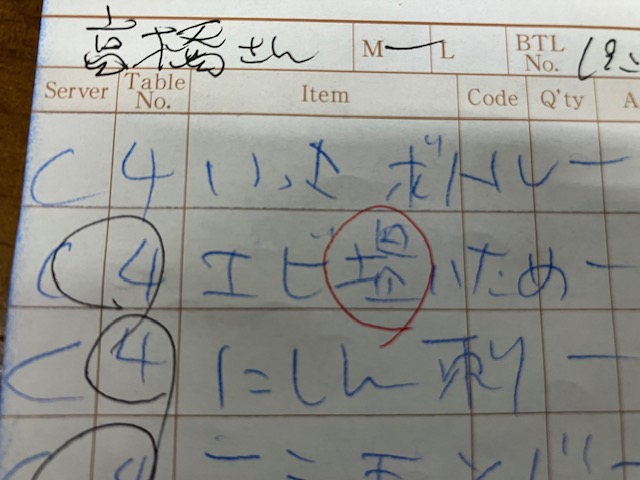 高橋さん M L BTL No.
Server Table No. Item Code Q'ty A
C 4 いっさ ボトル 一
C 4 エビ塩いため 一
C 4 にしん刺 一